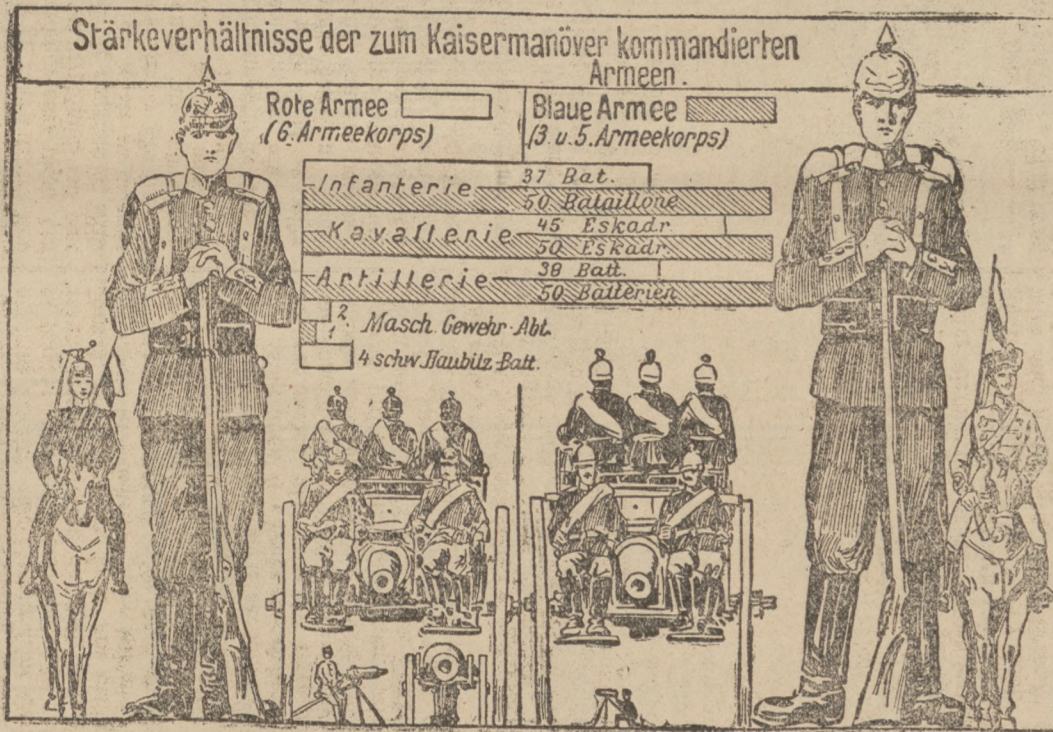 Stärkeverhältnisse der zum Kaisermanöver kommandierten
Armeen.
Rote Armee
(6. Armeekorps)
Blaue Armee
(3. u. 5. Armeekorps)
Infanterie
37 Bat.
50 Bataillone
Kavallerie
45 Eskadr.
50 Eskadr.
Artillerie
38 Batt.
50 Batterien
2
1
Masch. Gewehr-Abt.
4 schw. Haubitz-Batt.